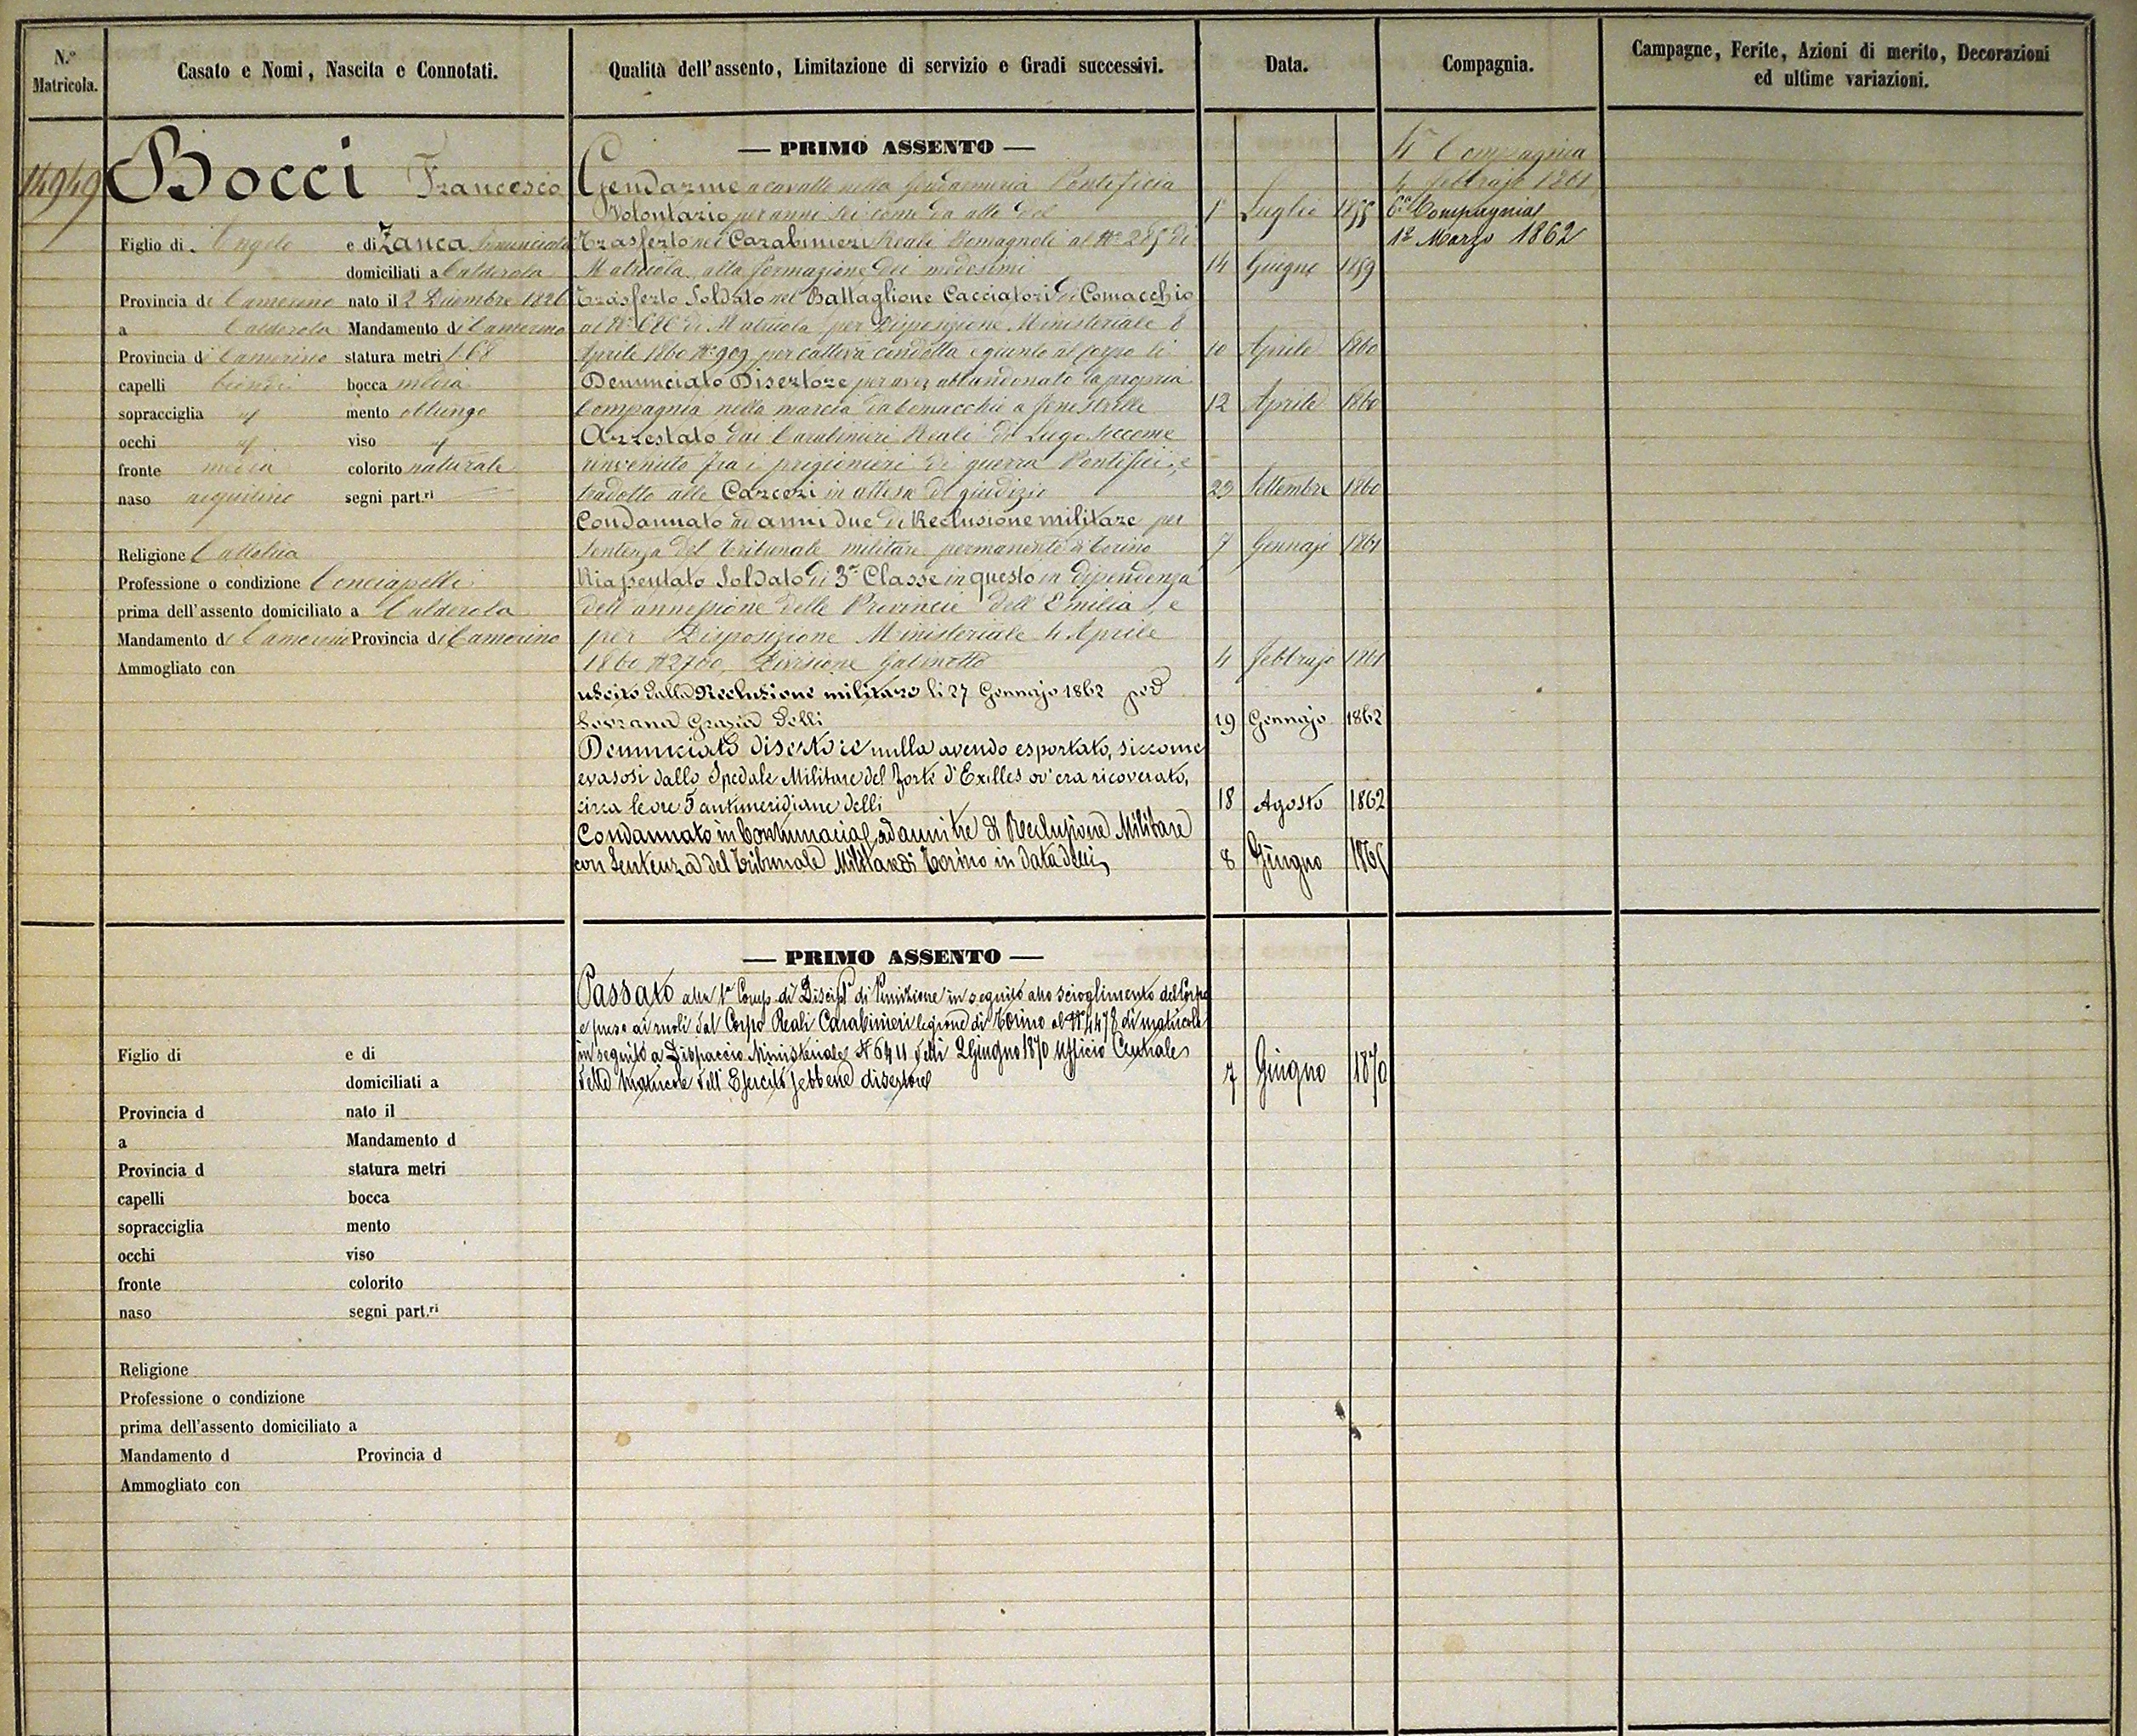 N.º Matricola.
Casato e Nomi, Nascita e Connotati.
Qualità dell'assento, Limitazione di servizio e Gradi successivi.
Data.
Compagnia.
Campagne, Ferite, Azioni di merito, Decorazioni
ed ultime variazioni.
14949
Bocci Francesco
Figlio di Angelo e di Zanca Annunciata
domiciliati a Calderola
Provincia di Camerino nato il 2 Dicembre 1826
a Calderola Mandamento di Camerino
Provincia di Camerino statura metri 1.68
capelli biondi bocca media
sopracciglia id mento oblungo
occhi id viso id
fronte media colorito naturale
naso aquilino segni part.ri
Religione Cattolica
Professione o condizione Conciapelli
prima dell'assento domiciliato a Calderola
Mandamento di Camerino Provincia di Camerino
Ammogliato con
— PRIMO ASSENTO —
Gendarme a cavallo nella Gendarmeria Pontificia
Volontario per anni sei come da atto del 1º Luglio 1855
Trasferto nei Carabinieri Reali Romagnoli al Nº 285 di
Matricola, alla formazione dei medesimi 14 Giugno 1859
Trasferto Soldato nel Battaglione Cacciatori di Comacchio
al Nº di Matricola per Disposizione Ministeriale 8
Aprile 1860 Nº 909 per cattiva condotta e giunto al Corpo li 10 Aprile 1860
Denunciato Disertore per aver abbandonato la propria
Compagnia nella marcia da Comacchio a Fenestrelle 12 Aprile 1860
Arrestato dai Carabinieri Reali di Lugo siccome
rinvenuto fra i prigionieri di guerra Pontifici, e
tradotto alle Carceri in attesa di giudizio 29 Settembre 1860
Condannato ad anni due di Reclusione militare per
sentenza del Tribunale militare permanente di Torino 7 Gennajo 1861
Riassentato Soldato di 3ª Classe in questo in dipendenza
dell'annessione delle Provincie dell'Emilia, e
per Disposizione Ministeriale 4 Aprile
1860 Nº 2700, Divisione Gabinetto 4 Febbrajo 1861
uscito dalla Reclusione militare li 27 Gennajo 1862 per
Sovrana Grazia delli 19 Gennajo 1862
Denunciato disertore nulla avendo esportato, siccome
evasosi dallo Spedale Militare del Forte d'Exilles ov'era ricoverato,
circa le ore 5 antimeridiane delli 18 Agosto 1862
Condannato in Contumacia ad anni tre di Reclusione Militare
con Sentenza del Tribunale Militare di Torino in data delli 8 Giugno 1865
4ª Compagnia
4 Febbrajo 1861
6ª Compagnia
1º Marzo 1862
— PRIMO ASSENTO —
Passato alla 1ª Comp. di Discipl.ª di Punizione in seguito allo scioglimento del Corpo
e preso ai ruoli dal Corpo Reali Carabinieri legione di Torino al Nº 4478 di matricola
in seguito a Dispaccio Ministeriale Nº 6411 delli 2 Giugno 1870 Ufficio Centrale
delle Matricole dell'Esercito sebbene disertore 7 Giugno 1870
Figlio di e di
domiciliati a
Provincia d nato il
a Mandamento d
Provincia d statura metri
capelli bocca
sopracciglia mento
occhi viso
fronte colorito
naso segni part.ri
Religione
Professione o condizione
prima dell'assento domiciliato a
Mandamento d Provincia d
Ammogliato con